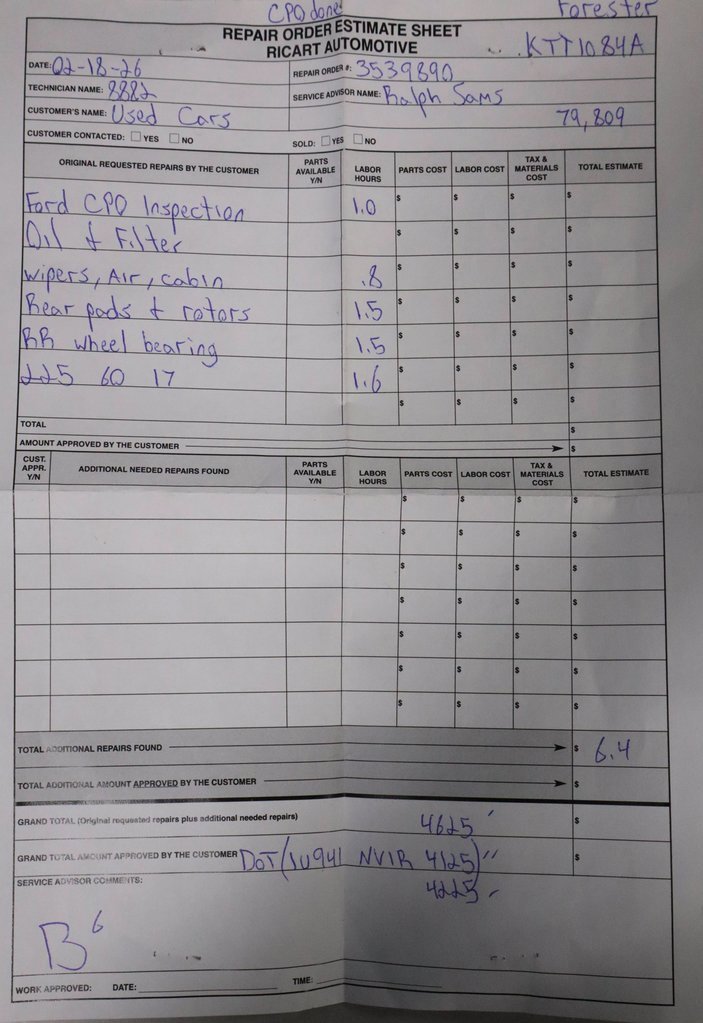 CPO done
Forester
REPAIR ORDER ESTIMATE SHEET
RICART AUTOMOTIVE
KTT1084A
DATE: 02-18-26
REPAIR ORDER #: 3539890
TECHNICIAN NAME: 8882
SERVICE ADVISOR NAME: Ralph Sams
CUSTOMER'S NAME: Used Cars
79,809
CUSTOMER CONTACTED: YES NO SOLD: YES NO
ORIGINAL REQUESTED REPAIRS BY THE CUSTOMER PARTS AVAILABLE Y/N LABOR HOURS PARTS COST LABOR COST TAX & MATERIALS COST TOTAL ESTIMATE
Ford CPO Inspection 1.0 $ $ $ $
Oil & Filter $ $ $ $
wipers, Air, cabin .8 $ $ $ $
Rear pads & rotors 1.5 $ $ $ $
RR wheel bearing 1.5 $ $ $ $
225 60 17 1.6 $ $ $ $
$ $ $ $
TOTAL $
AMOUNT APPROVED BY THE CUSTOMER $
CUST. APPR. Y/N ADDITIONAL NEEDED REPAIRS FOUND PARTS AVAILABLE Y/N LABOR HOURS PARTS COST LABOR COST TAX & MATERIALS COST TOTAL ESTIMATE
$ $ $ $
$ $ $ $
$ $ $ $
$ $ $ $
$ $ $ $
$ $ $ $
$ $ $ $
TOTAL ADDITIONAL REPAIRS FOUND $ 6.4
TOTAL ADDITIONAL AMOUNT APPROVED BY THE CUSTOMER $
GRAND TOTAL (Original requested repairs plus additional needed repairs) 4625 $
GRAND TOTAL AMOUNT APPROVED BY THE CUSTOMER DOT (1U941 NVIR 4125) $
SERVICE ADVISOR COMMENTS: 4225
B6
WORK APPROVED: DATE: TIME: